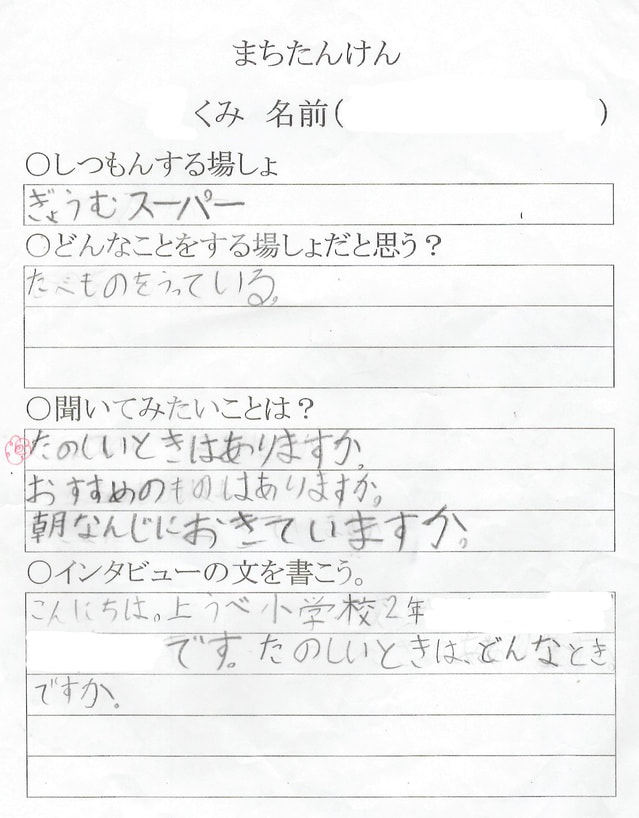 まちたんけん
くみ 名前( )
○しつもんする場しょ
ぎょうむスーパー
○どんなことをする場しょだと思う？
たべものをうっている。
○聞いてみたいことは？
たのしいときはありますか。
おすすめのものはありますか。
朝なんじにおきていますか。
○インタビューの文を書こう。
こんにちは。上うべ小学校2年
です。たのしいときは、どんなとき
ですか。